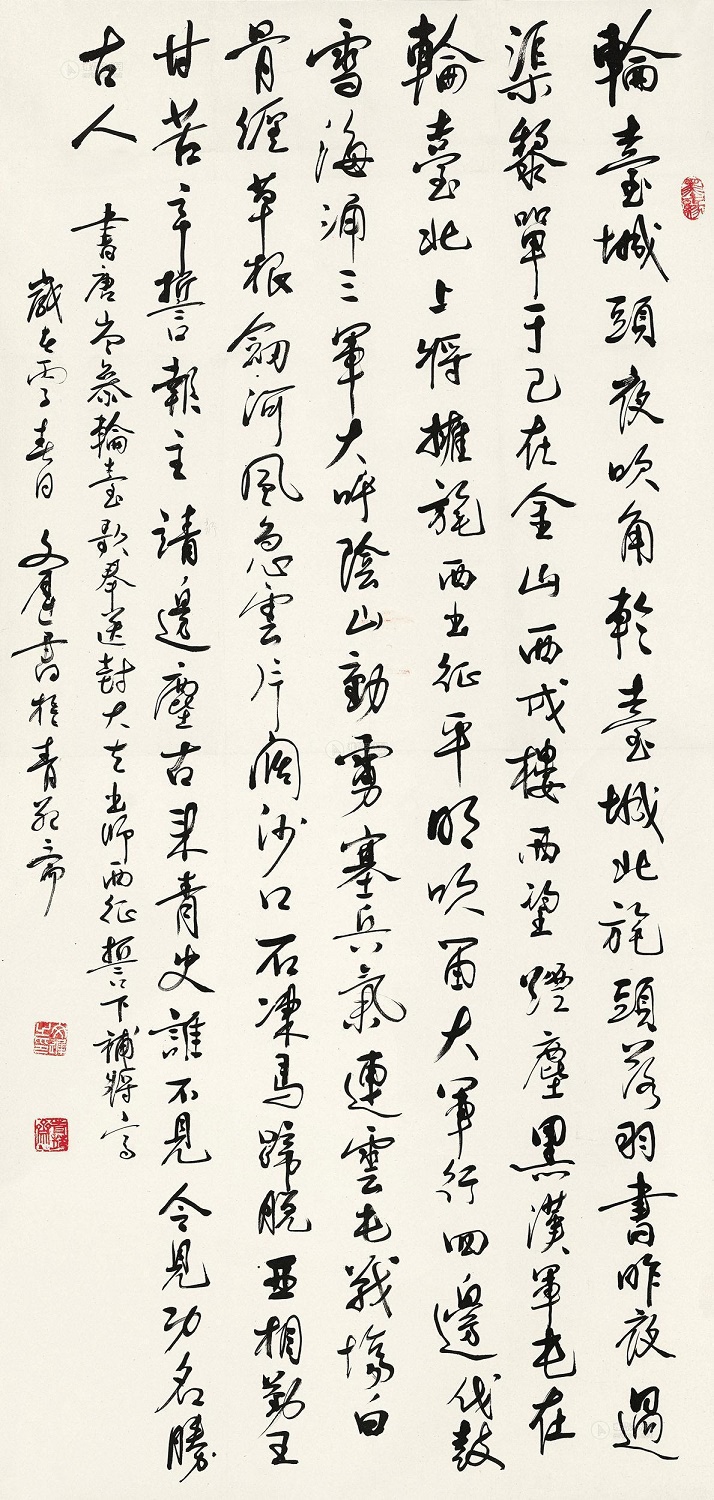 輪臺城頭夜吹角輪臺城北旄頭落羽書昨夜過
渠黎單于已在金山西戍樓西望煙塵黑漢軍屯在
輪臺北上將擁旄西出征平明吹笛大軍行四邊伐鼓
雪海涌三軍大呼陰山動虜塞兵氣連雲屯戰場白
骨纏草根劍河風急雲片闊沙口石凍馬蹄脫亞相勤王
甘苦辛誓報主靖邊塵古來青史誰不見今見功名勝
古人
書唐岑參輪臺歌奉送封大夫出師西征誓下補將字
歲春日文書於青齋